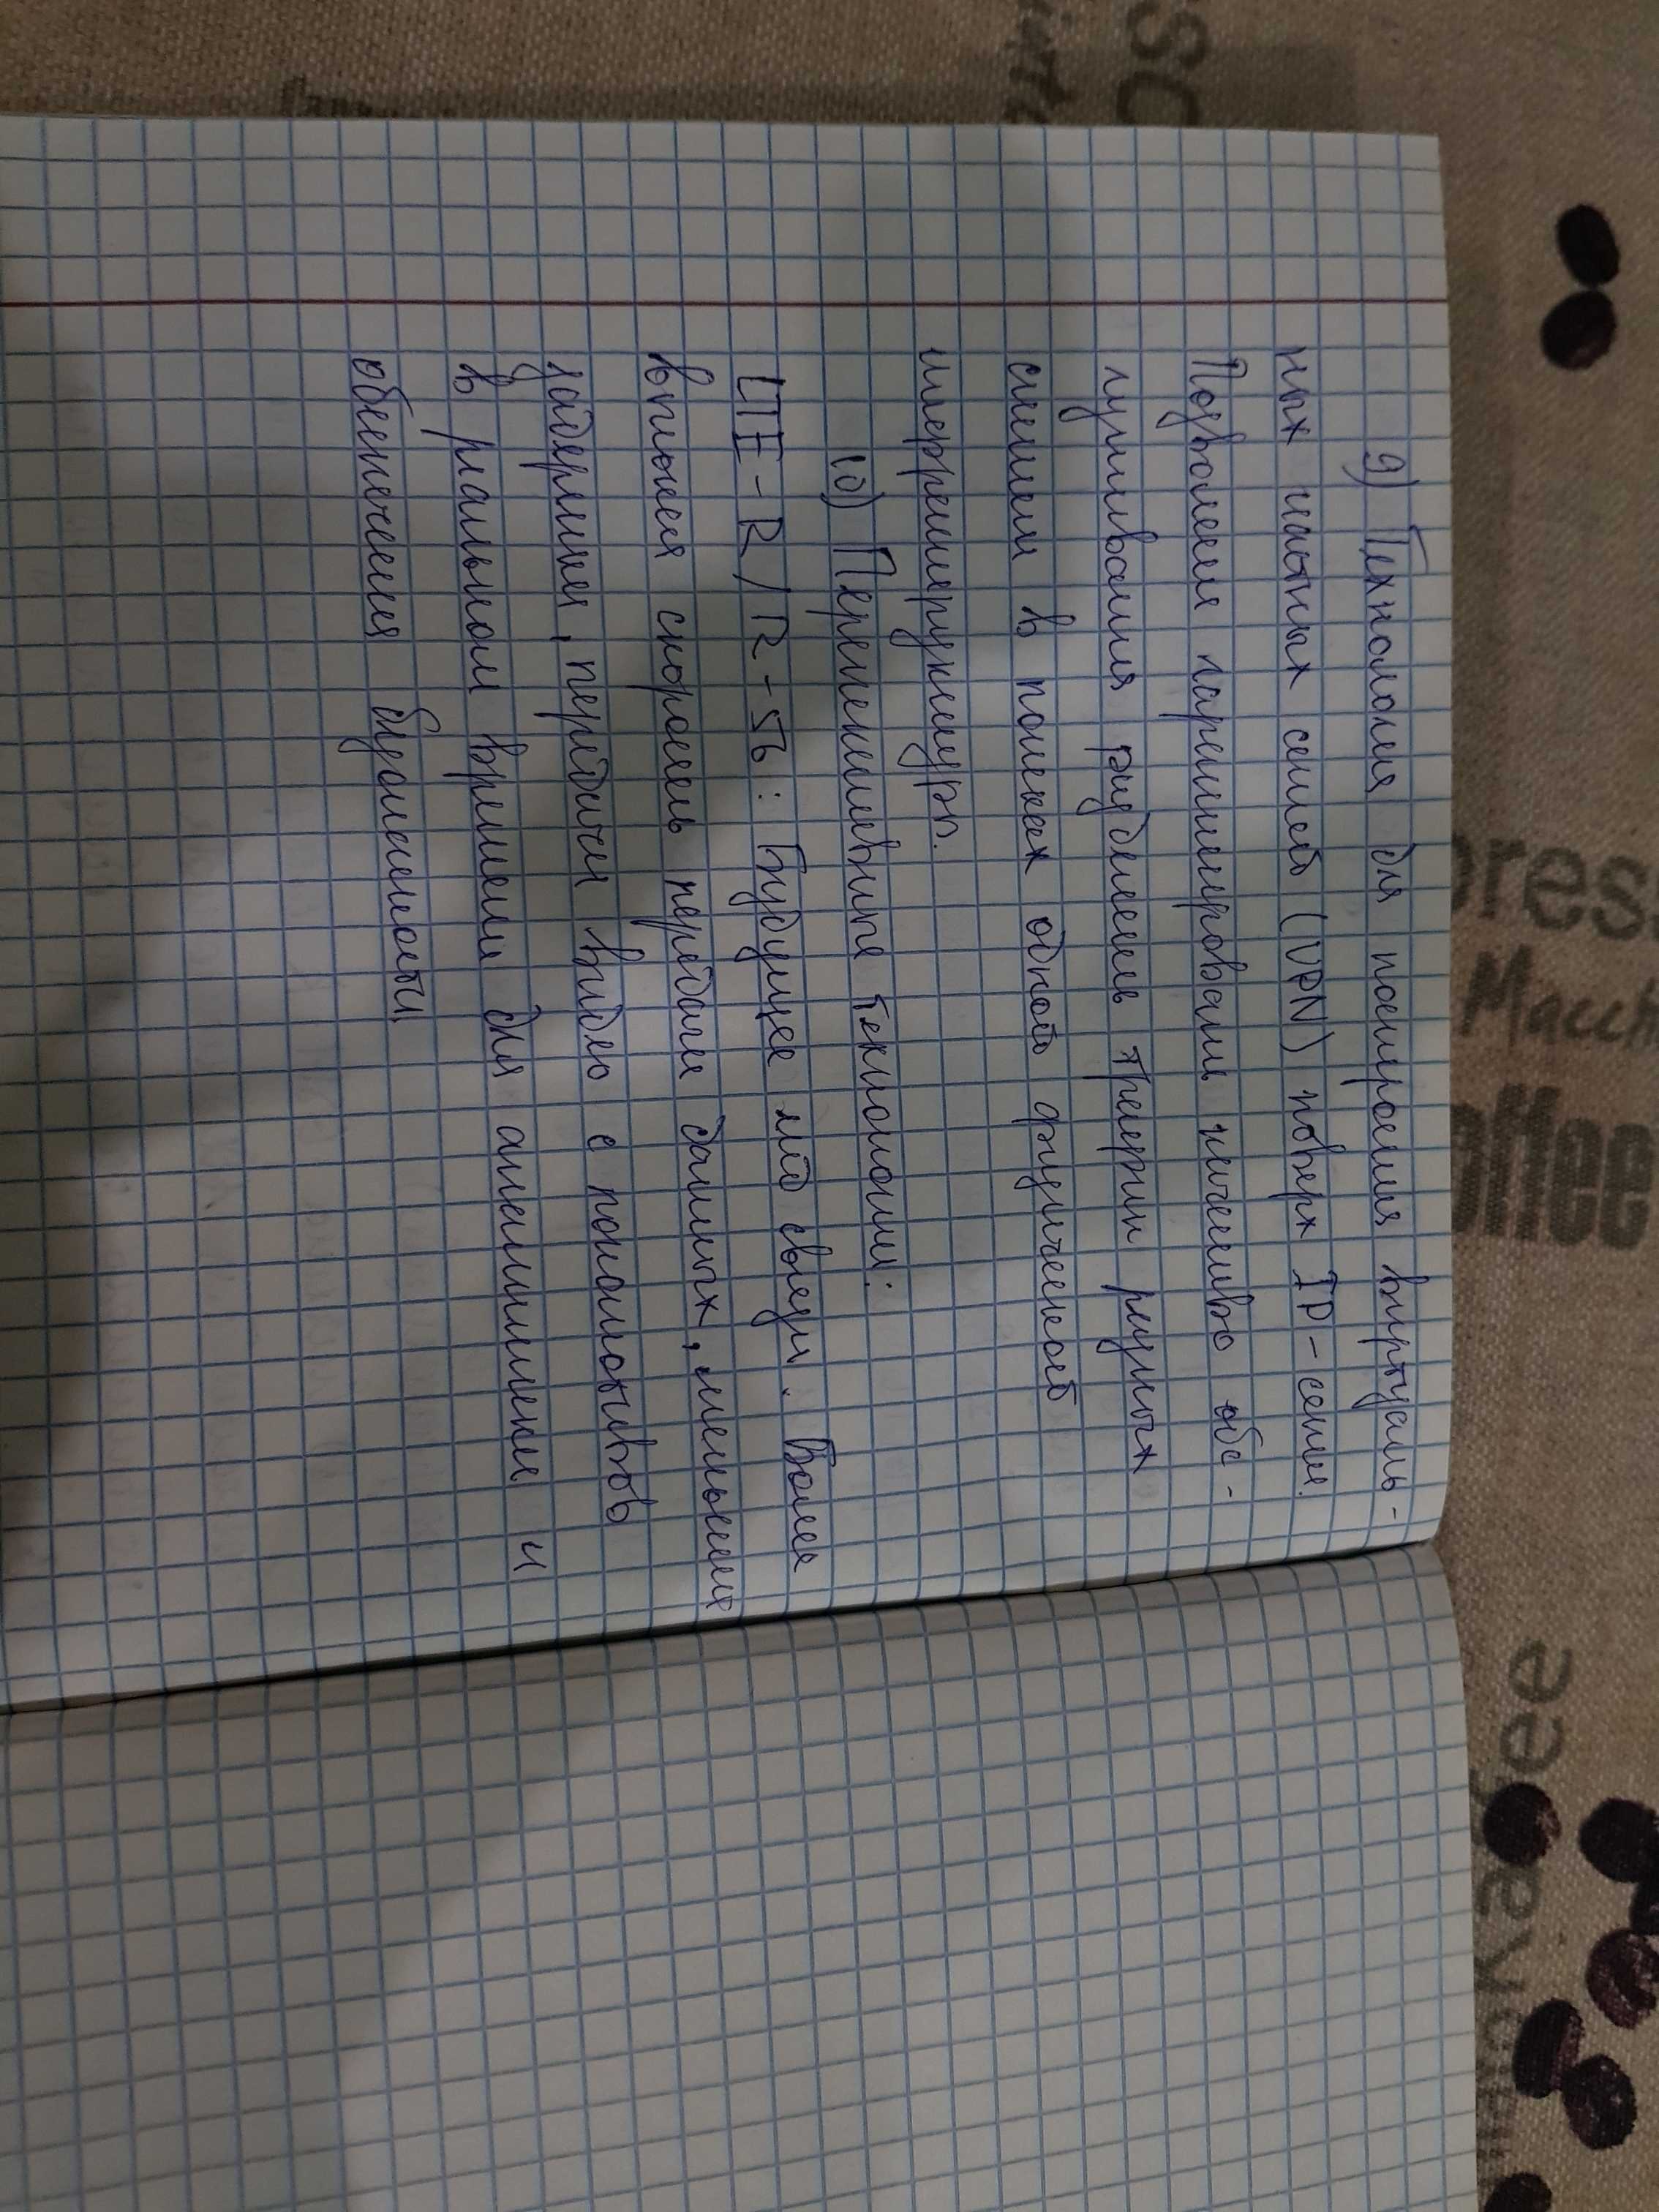 9) Технология для построения виртуаль-
ных частных сетей (VPN) поверх IP-сети.
Позволяет гарантировать качество обс-
луживания разделять трафик разных
систем в потоках одной физической
инфраструктуры.
10) Перспективные технологии:
LTE-R / R-5G: Будущее жд связи. Более
высокая скорость передачи данных, меньшая
задержка, передачи видео с локомотивов
в реальном времени для аналитики и
обеспечения безопасности
pres
Macch
offee
ee
OS